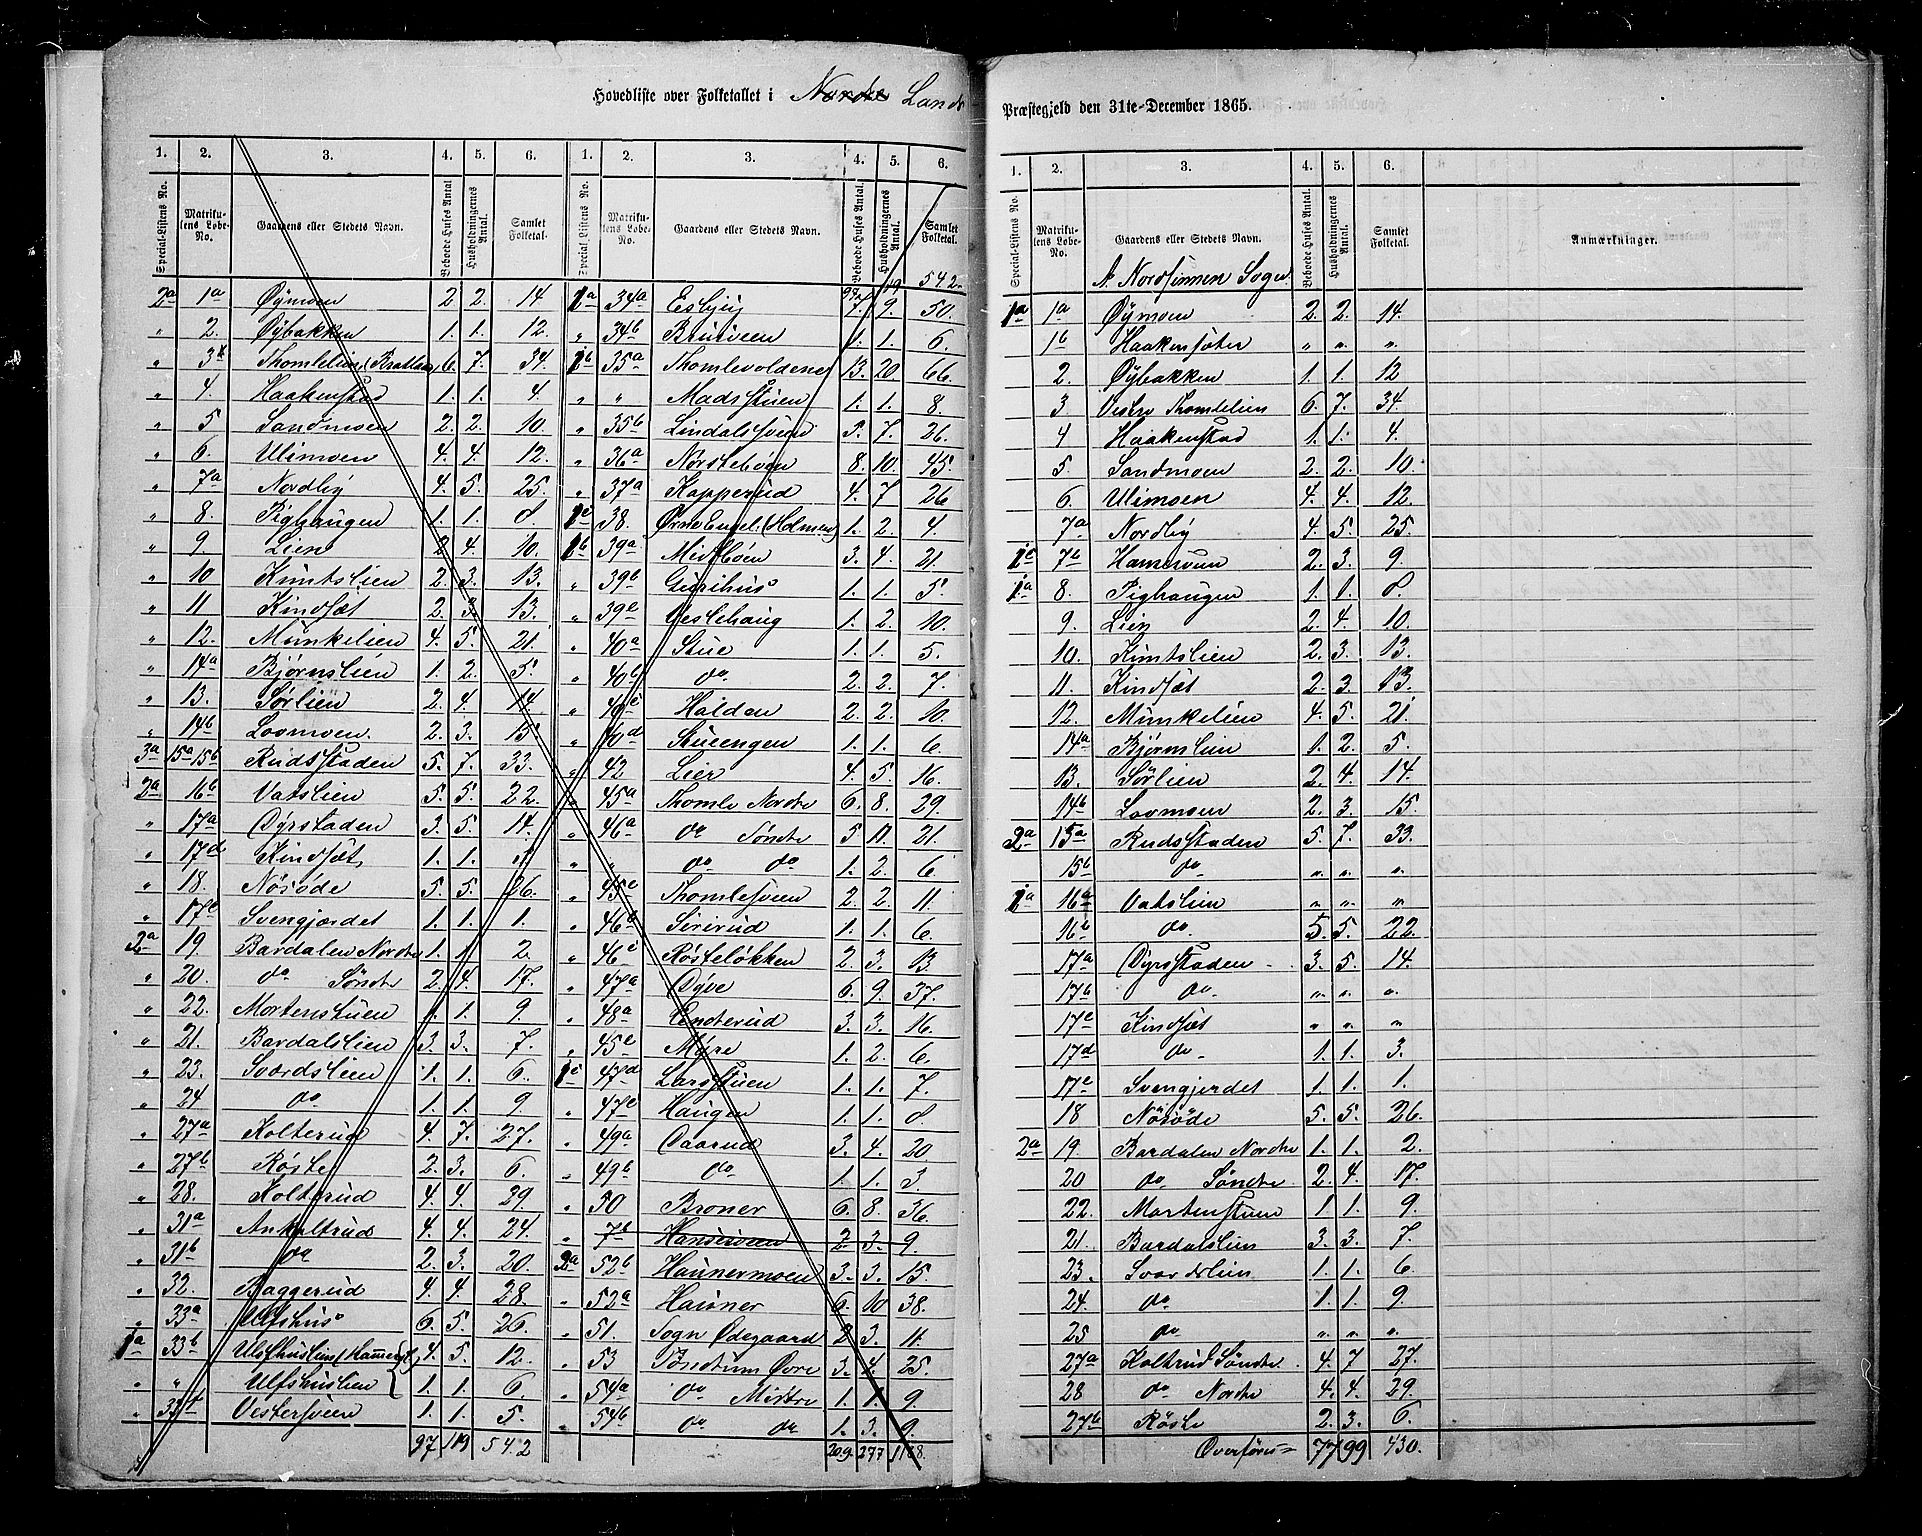 Hovedliste over Folketallet i Nordre Lands
Præstegjeld den 31te December 1865.
1. 2. 3. 4. 5. 6. 1. 2. 3. 4. 5. 6.
Special-Listens No. Matrikulens Løbe-No. Gaardens eller Stedets Navn. Beboede Huses Antal Husholdningernes Antal. Samlet Folketal. Special-Listens No. Matrikulens Løbe-No. Gaardens eller Stedets Navn. Beboede Huses Antal Husholdningernes Antal. Samlet Folketal.
97 119 542.
2a 1a Øymoen 2 2. 14 1a 34a Esbjug 7. 9. 50.
" 2. Øybakken 1. 1. 12. " 34b Brusveen 1. 1. 6.
" 3 Thomlelien (Bratlien) 6. 7. 34. 1b 35a Thomlevoldene 13. 20. 66
" 4. Haakenstad 1. 1. 4. " " Madsstuen 1. 1. 8.
" 5 Sandmoen 2. 2. 10. " 35b Lindalsveen 5. 7. 26.
" 6. Ulimoen 4. 4. 12. " 36a Nørstebøen 8. 10. 45.
" 7a Nordby 4. 5. 25. " 37a Kapperud 4. 7 26
" 8. Pighaugen 1. 1. 8. 1c 38. Ørne Engel. (Holmen) 1. 2. 4.
" 9. Lien 2 4. 10. 1b 39a Midtbøen 3. 4. 21.
" 10 Knutslien 2. 3. 13. " 39b Gurihus 1. 1. 5.
" 11 Kindsæt 2. 3. 13. " 39c Veslehaug 1. 2. 10.
" 12. Munkelien 4. 5. 21. " 40a Stue 1. 1. 5.
" 14a Bjørnslien 1. 2. 5. " 40b do. 2. 2. 7.
" 13. Sørlien 2. 4. 14. " 40c Halden 2. 2. 10.
" 14b Lovmoen. 2. 3. 15. " 40d Stueengen 1. 1. 6.
3a 15a 15b Rudsstaden 5. 7. 33. " 42 Lier 4. 5. 16.
2a 16b Vatslien 5. 5. 22. " 45a Thomle Nordre 6. 8. 29.
" 17a Dyrstaden 3. 5. 14. " 46a do Søndre 5 11. 21.
" 17d Kindsæt 1. 1. " " do do 1. 2. 6.
" 18. Nøsøde 5. 5. 26. " 45c Thomlesveen 2. 2. 11.
" 17e Svengjærdet 1. 1. 1. " 46b Sirirud 1. 1. 6.
2a 19 Bardalen Nordre 1. 1. 2. " 46c Røsteløkken 2. 3. 13.
" 20. do Søndre 2. 4. 17. " 47a Dyve 6. 9. 37.
" 22. Mortenstuen 1. 1. 9. " 48a Enderud 3. 3. 16
" 21. Bardalslien 3. 3. 7. " 45e Myre 1. 2. 6.
" 23. Sværdslien 1. 1. 6. 1c 47d Larsstuen 1. 1. 7.
" 24 do 1. 1. 9. " 47c Haugen 1. 1. 8
" 27a Kolterud 4. 7. 27. " 49a Daarud 3. 4. 20
" 27b Røste 2. 3. 6. " 49b do 1. 1. 3.
" 28. Kolterud 4. 4. 29. " 50 Broner 6. 8. 36
" 31a Ankeltrud 4. 4. 24. " 7b Hansesveen 2. 3. 9.
" 31b do 2. 3. 20. 2a 52b Haunermoen 3. 3. 15.
" 32. Baggerud 4. 4. 28. " 52a Hauner 6. 10 38.
" 33a Ulfshus 6. 5. 26. " 51. Sogn Ødegaard 2 3. 11.
1a 33b Ulfshuslien (Hammerst) 4. 5. 12. " 53 Tøndtum Øvre 3. 4. 25.
" " Ulfshuslien 1. 1. 6. " 54a do Midtre 1. 1. 9.
" 33 Vestersveen 1. 1. 5. " 54b do do 1. 3. 9.
97 119 542 209 277 1138.
1. 2. 3. 4. 5. 6.
Special-Listens No. Matrikulens Løbe-No. Gaardens eller Stedets Navn. Beboede Huses Antal. Husholdningernes Antal. Samlet Folketal. Anmærkninger.
A Nordsinnen Sogn
1a 1a Øymoen 2. 2. 14.
1b Haakensæter " " "
2. Øybakken 1. 1. 12
3 Vestre Thomlelien 6. 7. 34.
4 Haakenstad 1. 1. 4.
5. Sandmoen 2. 2. 10.
6. Ulimoen 4. 4. 12.
7a Nordby 4. 5. 25.
1c 7b Hansesveen 2. 3. 9.
1a 8. Pighaugen 1. 1. 8.
9. Lien 2. 4. 10.
10. Knutslien 2. 3. 13.
11. Kindsæt 2. 3. 13.
12. Munkelien 4. 5. 21.
14a Bjørnslien 1. 2. 5.
13. Sørlien 2. 4. 14.
14b Lovmoen 2. 3. 15.
2a 15a Rudsstaden 5. 7. 33.
15b do " " "
1a 16a Vatslien " " "
16b do. 5. 5. 22.
17a Dyrsstaden 3. 5. 14.
17b do. " " "
17c Kindsæt " " "
17d do. 1. 1. 3.
17e Svengjerdet 1. 1. 1.
18 Nøsøde 5. 5. 26.
2a 19. Bardalen Nordre 1. 1. 2.
20 do Søndre 2. 4. 17.
22. Mortenstuen 1 1. 9.
21. Bardalslien 3. 3. 7.
23. Sværdslien 1. 1. 6
24. do 1. 1. 9.
25 do " " "
27a Koltrud Søndre 4. 7 27.
28 do Nordre 4. 4. 29.
27b Røste 2. 3. 6.
Overføres = 77 99 430.